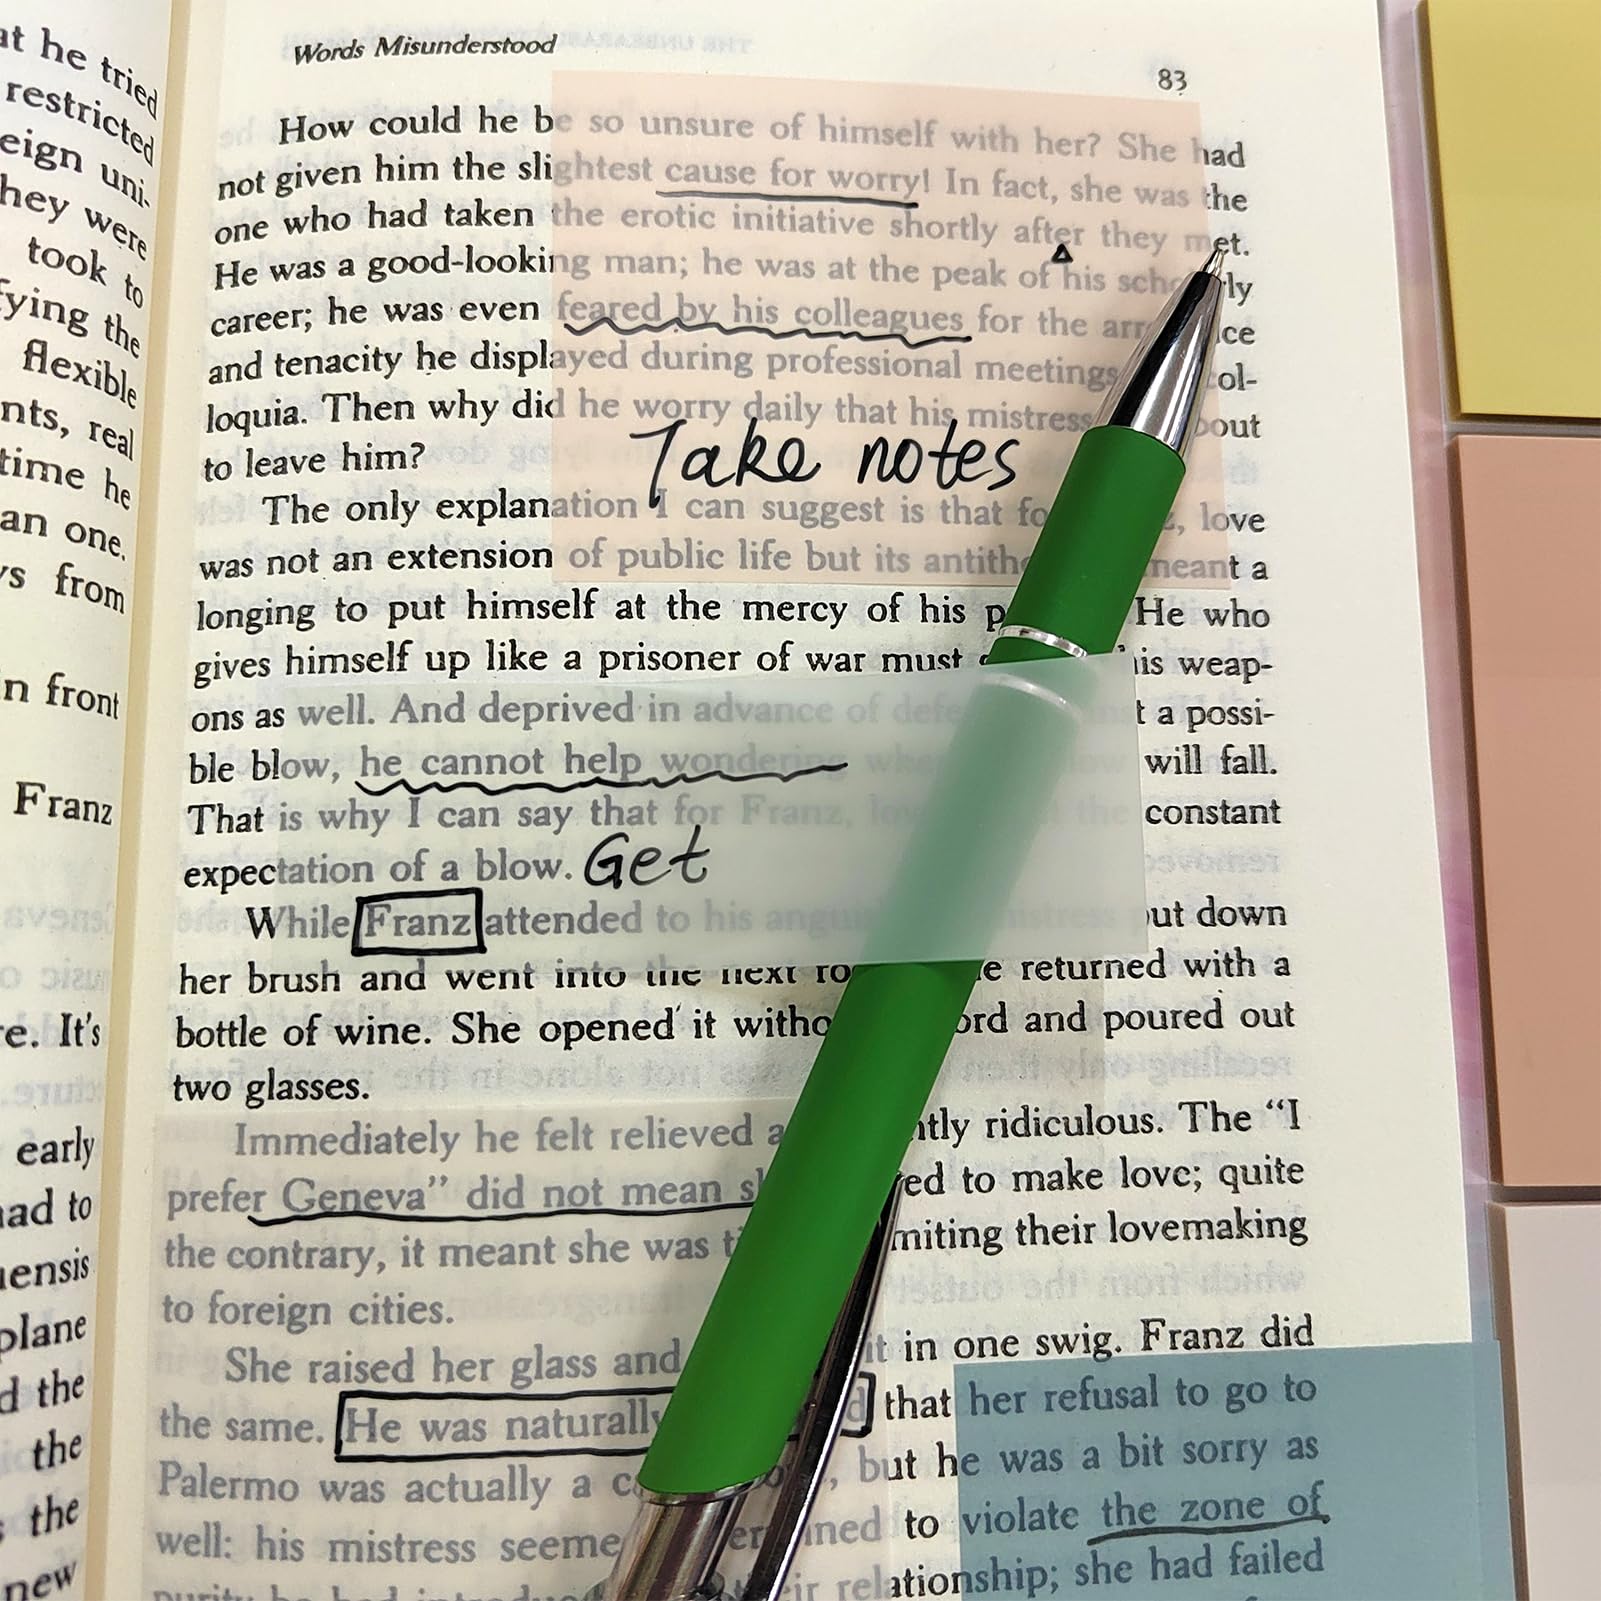 at he tried
restricted
eign uni-
hey were
took to
fying the
flexible
nts, real
time he
an one.
from
n front
Franz
re. It's
early
had to
plane
d the
the
the
new
Words Misunderstood
83
How could he be so unsure of himself with her? She had
not given him the slightest cause for worry! In fact, she was the
one who had taken the erotic initiative shortly after they met.
He was a good-looking man; he was at the peak of his sch rly
career; he was even feared by his colleagues for the arr ce
and tenacity he displayed during professional meetings ol-
loquia. Then why did he worry daily that his mistress out
to leave him?
Take notes
The only explanation I can suggest is that fo , love
was not an extension of public life but its antith meant a
longing to put himself at the mercy of his p He who
gives himself up like a prisoner of war must his weap-
ons as well. And deprived in advance of defe t a possi-
ble blow, he cannot help wondering whe low will fall.
That is why I can say that for Franz, lov the constant
expectation of a blow.
Get
While Franz attended to his anguis mistress put down
her brush and went into the next ro e returned with a
bottle of wine. She opened it witho ord and poured out
two glasses.
Immediately he felt relieved a ntly ridiculous. The “I
prefer Geneva” did not mean s ed to make love; quite
the contrary, it meant she was ti miting their lovemaking
to foreign cities.
She raised her glass and it in one swig. Franz did
the same. He was naturally d that her refusal to go to
Palermo was actually a c lo , but he was a bit sorry as
well: his mistress seeme er ined to violate the zone of
purity he had introdu their relationship; she had failed